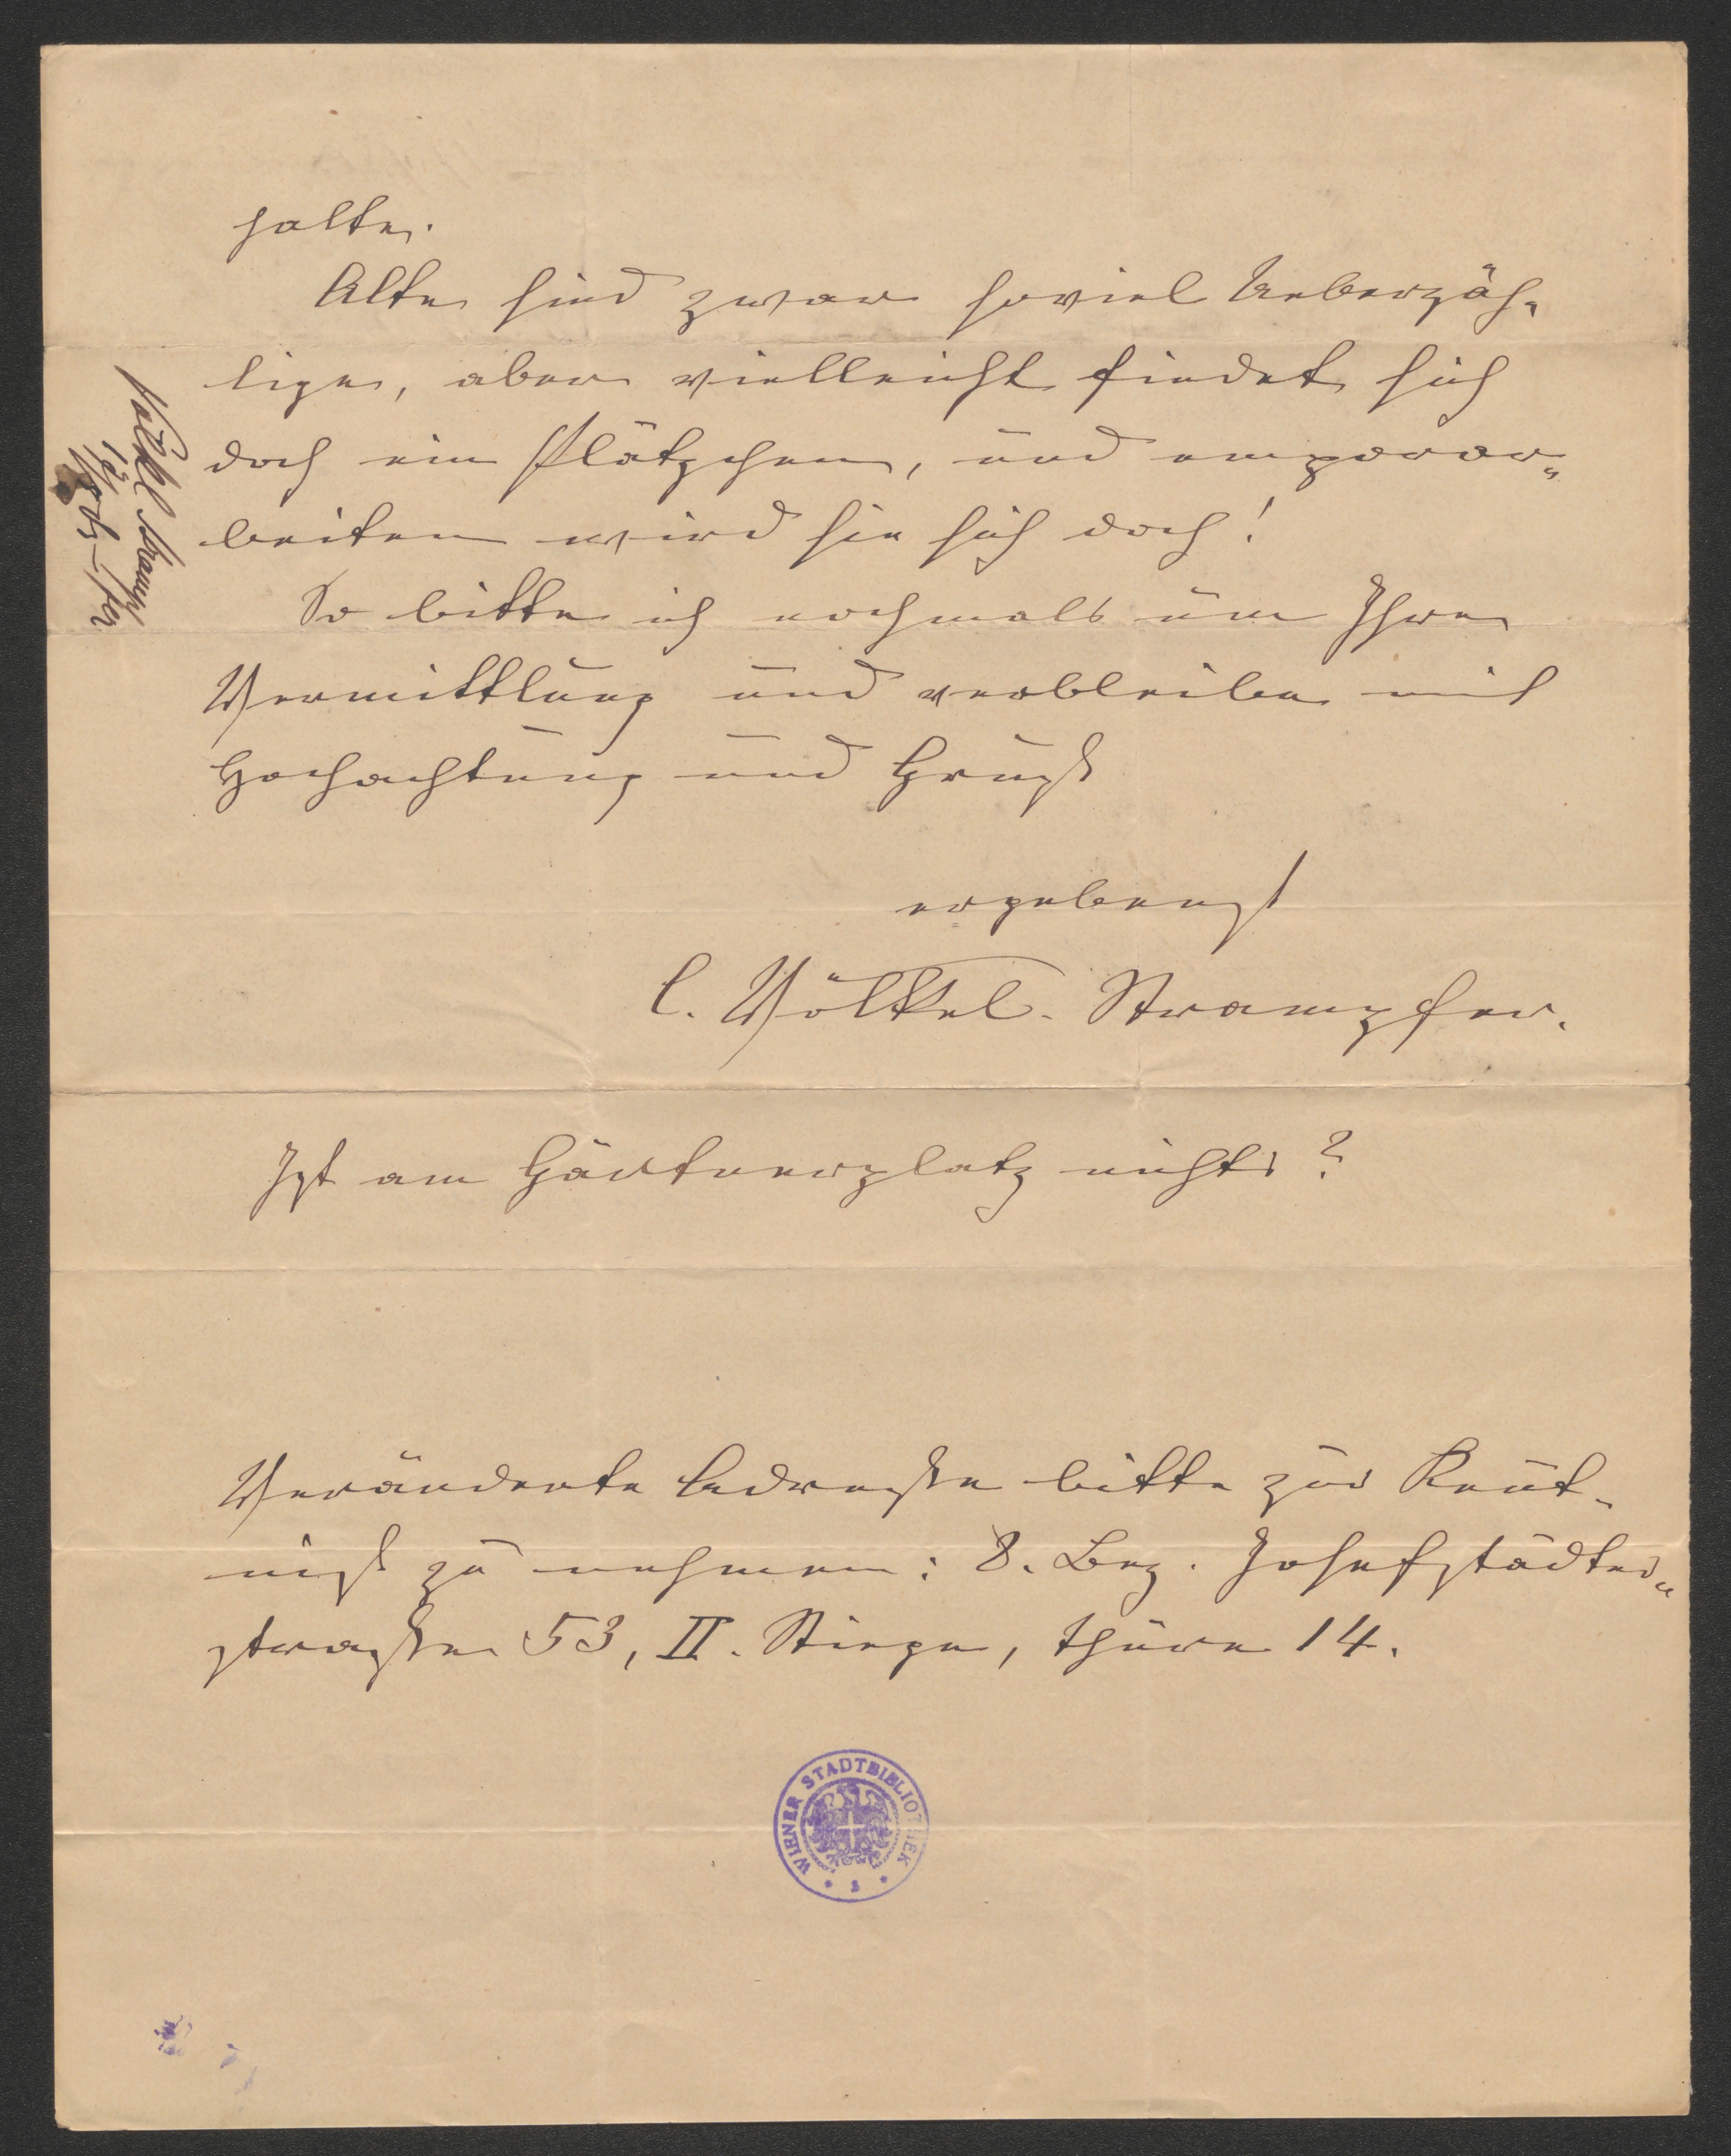 halte.
Alte sind zwar soviel Ueberzäh-
lige, aber vielleicht findet sich
doch ein Plätzchen, und emporar-
beiten wird sie sich doch!
So bitte ich nochmals um Ihre
Vermittlung und verbleibe mit
Hochachtung und Gruß
ergebenst
C. Völkel-Strampfer.
Ist am Gärtnerplatz nichts?
Veränderte Adresse bitte zur Kennt-
niß zu nehmen: 8. Bez. Josefstädter-
straße 53, II. Stiege, Thüre 14.
Völkl Strampf
fer
WIENER STADTBIBLIOTHEK